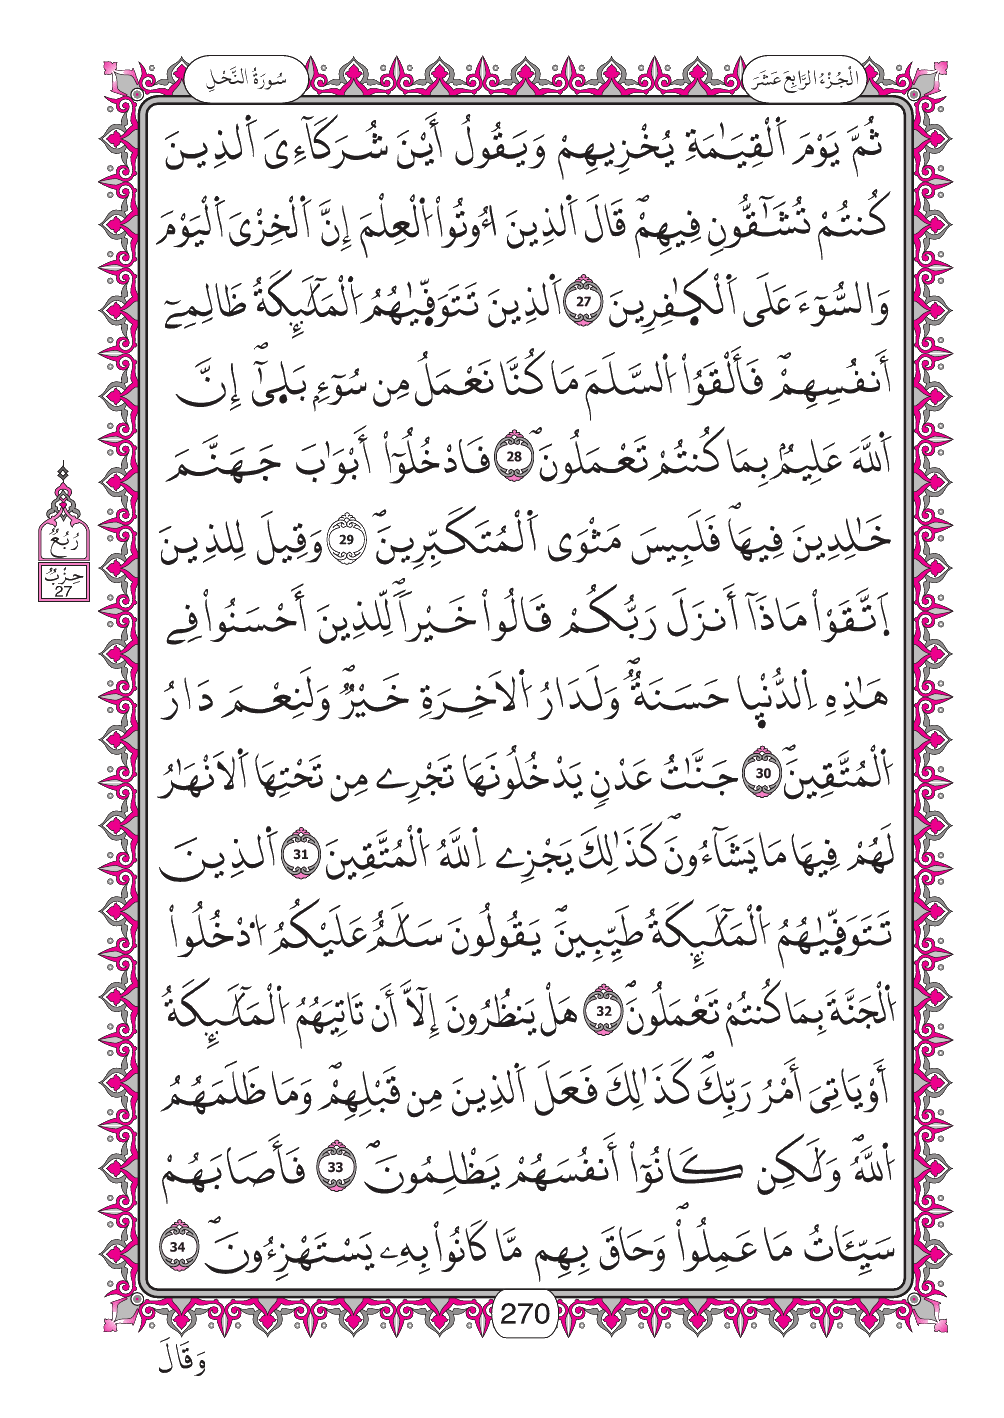 سُورَةُ النَّحْلِ
الْجُزْءُ الرَّابِعَ عَشَرَ
ثُمَّ يَوْمَ اَ۬لْقِيَٰمَةِ يُخْزِيهِمْ وَيَقُولُ أَيْنَ شُرَكَآءِىَ اَ۬لذِينَ
كُنتُمْ تُشَٰٓقُّونِ فِيهِمْۖ قَالَ اَ۬لذِينَ أُوتُواْ اُ۬لْعِلْمَ إِنَّ اَ۬لْخِزْىَ اَ۬لْيَوْمَ
وَالسُّوٓءَ عَلَى اَ۬لْكٰ۪فِرِينَ 27 اَ۬لذِينَ تَتَوَفّ۪يٰهُمُ اُ۬لْمَلَٰٓئِكَةُ ظَالِمِےٓ
أَنفُسِهِمْۖ فَأَلْقَوُاْ اُ۬لسَّلَمَ مَا كُنَّا نَعْمَلُ مِن سُوٓءِۢ بَل۪ىٰٓۖ إِنَّ
اَ۬للَّهَ عَلِيمُۢ بِمَا كُنتُمْ تَعْمَلُونَۖ 28 فَادْخُلُوٓاْ أَبْوَٰبَ جَهَنَّمَ
خَٰلِدِينَ فِيهَاۖ فَلَبِيسَ مَثْوَى اَ۬لْمُتَكَبِّرِينَۖ 29 وَقِيلَ لِلذِينَ
اَ۪تَّقَوْاْ مَاذَآ أَنزَلَ رَبُّكُمْ قَالُواْ خَيْراٗۖ لِّلذِينَ أَحْسَنُواْ فِے
هَٰذِهِ اِ۬لدُّنْي۪ا حَسَنَةٞۖ وَلَدَارُ اُ۬لَاخِرَةِ خَيْرٞۖ وَلَنِعْمَ دَارُ
اُ۬لْمُتَّقِينَۖ 30 جَنَّٰتُ عَدْنٖ يَدْخُلُونَهَا تَجْرِے مِن تَحْتِهَا اَ۬لَانْهَٰرُ
لَهُمْ فِيهَا مَا يَشَآءُونَۖ كَذَٰلِكَ يَجْزِے اِ۬للَّهُ اُ۬لْمُتَّقِينَ 31 اَ۬لذِينَ
تَتَوَفّ۪يٰهُمُ اُ۬لْمَلَٰٓئِكَةُ طَيِّبِينَۖ يَقُولُونَ سَلَٰمٌ عَلَيْكُمُ اُ۟دْخُلُواْ
اُ۬لْجَنَّةَ بِمَا كُنتُمْ تَعْمَلُونَۖ 32 هَلْ يَنظُرُونَ إِلَّآ أَن تَاتِيَهُمُ اُ۬لْمَلَٰٓئِكَةُ
أَوْ يَاتِىَ أَمْرُ رَبِّكَۖ كَذَٰلِكَ فَعَلَ اَ۬لذِينَ مِن قَبْلِهِمْۖ وَمَا ظَلَمَهُمُ
اُ۬للَّهُۖ وَلَٰكِن كَانُوٓاْ أَنفُسَهُمْ يَظْلِمُونَۖ 33 فَأَصَابَهُمْ
سَيِّـَٔاتُ مَا عَمِلُواْۖ وَحَاقَ بِهِم مَّا كَانُواْ بِهِۦ يَسْتَهْزِءُونَۖ 34
رُبُعُ
حِزْبٌ
27
270
وَقَالَ